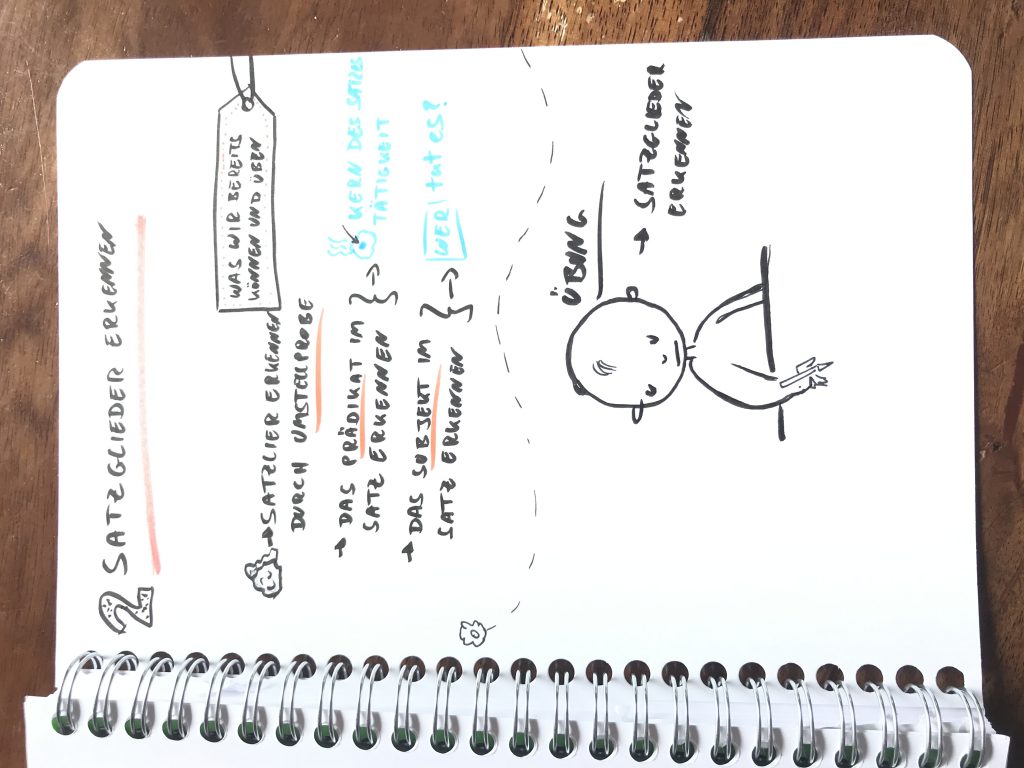 2 SATZGLIEDER ERKENNEN
WAS WIR BEREITS
KÖNNEN UND ÜBEN
→ SATZLIER ERKENNEN
DURCH UMSTELLPROBE
→ DAS PRÄDIKAT IM
SATZ ERKENNEN
} --> KERN DES SATZES
TÄTIGKEIT
→ DAS SUBJEKT IM
SATZ ERKENNEN
} --> WER | tut es?
ÜBUNG
→ SATZGLIEDER
ERKENNEN